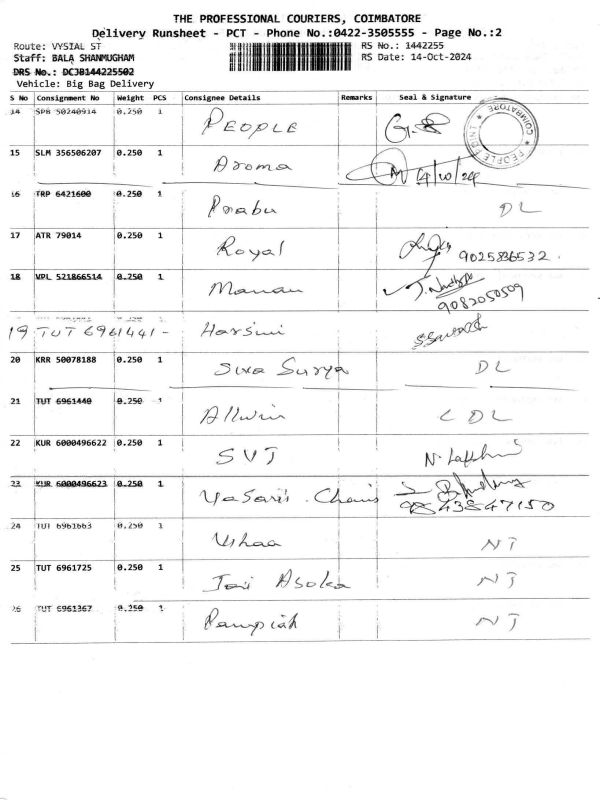 THE PROFESSIONAL COURIERS, COIMBATORE
Delivery Runsheet - PCT - Phone No.:0422-3505555 - Page No.:2
Route: VYSIAL ST RS No.: 1442255
Staff: BALA SHANMUGHAM RS Date: 14-Oct-2024
DRS No.: DCJB144225502
Vehicle: Big Bag Delivery
S No Consignment No Weight PCS Consignee Details Remarks Seal & Signature
14 SPB 50240914 0.250 1 PEOPLE
COIMBATORE
15 SLM 356506207 0.250 1 Aroma 14/10/24
16 TRP 6421600 0.250 1 Prabu DL
17 ATR 79014 0.250 1 Royal 9025836532
18 VPL 521866514 0.250 1 Manan
9082050509
19 TUT 6961441 - Harsini
20 KRR 50078188 0.250 1 Siva Surya DL
21 TUT 6961440 0.250 1 Allwin CDL
22 KUR 6000496622 0.250 1 SVJ N. Lakshmi
23 KUR 6000496623 0.250 1 Chains
9843847150
24 TUT 6961663 0.250 1 Ushaa NT
25 TUT 6961725 0.250 1 Asoka NT
26 TUT 6961367 0.250 1 NT